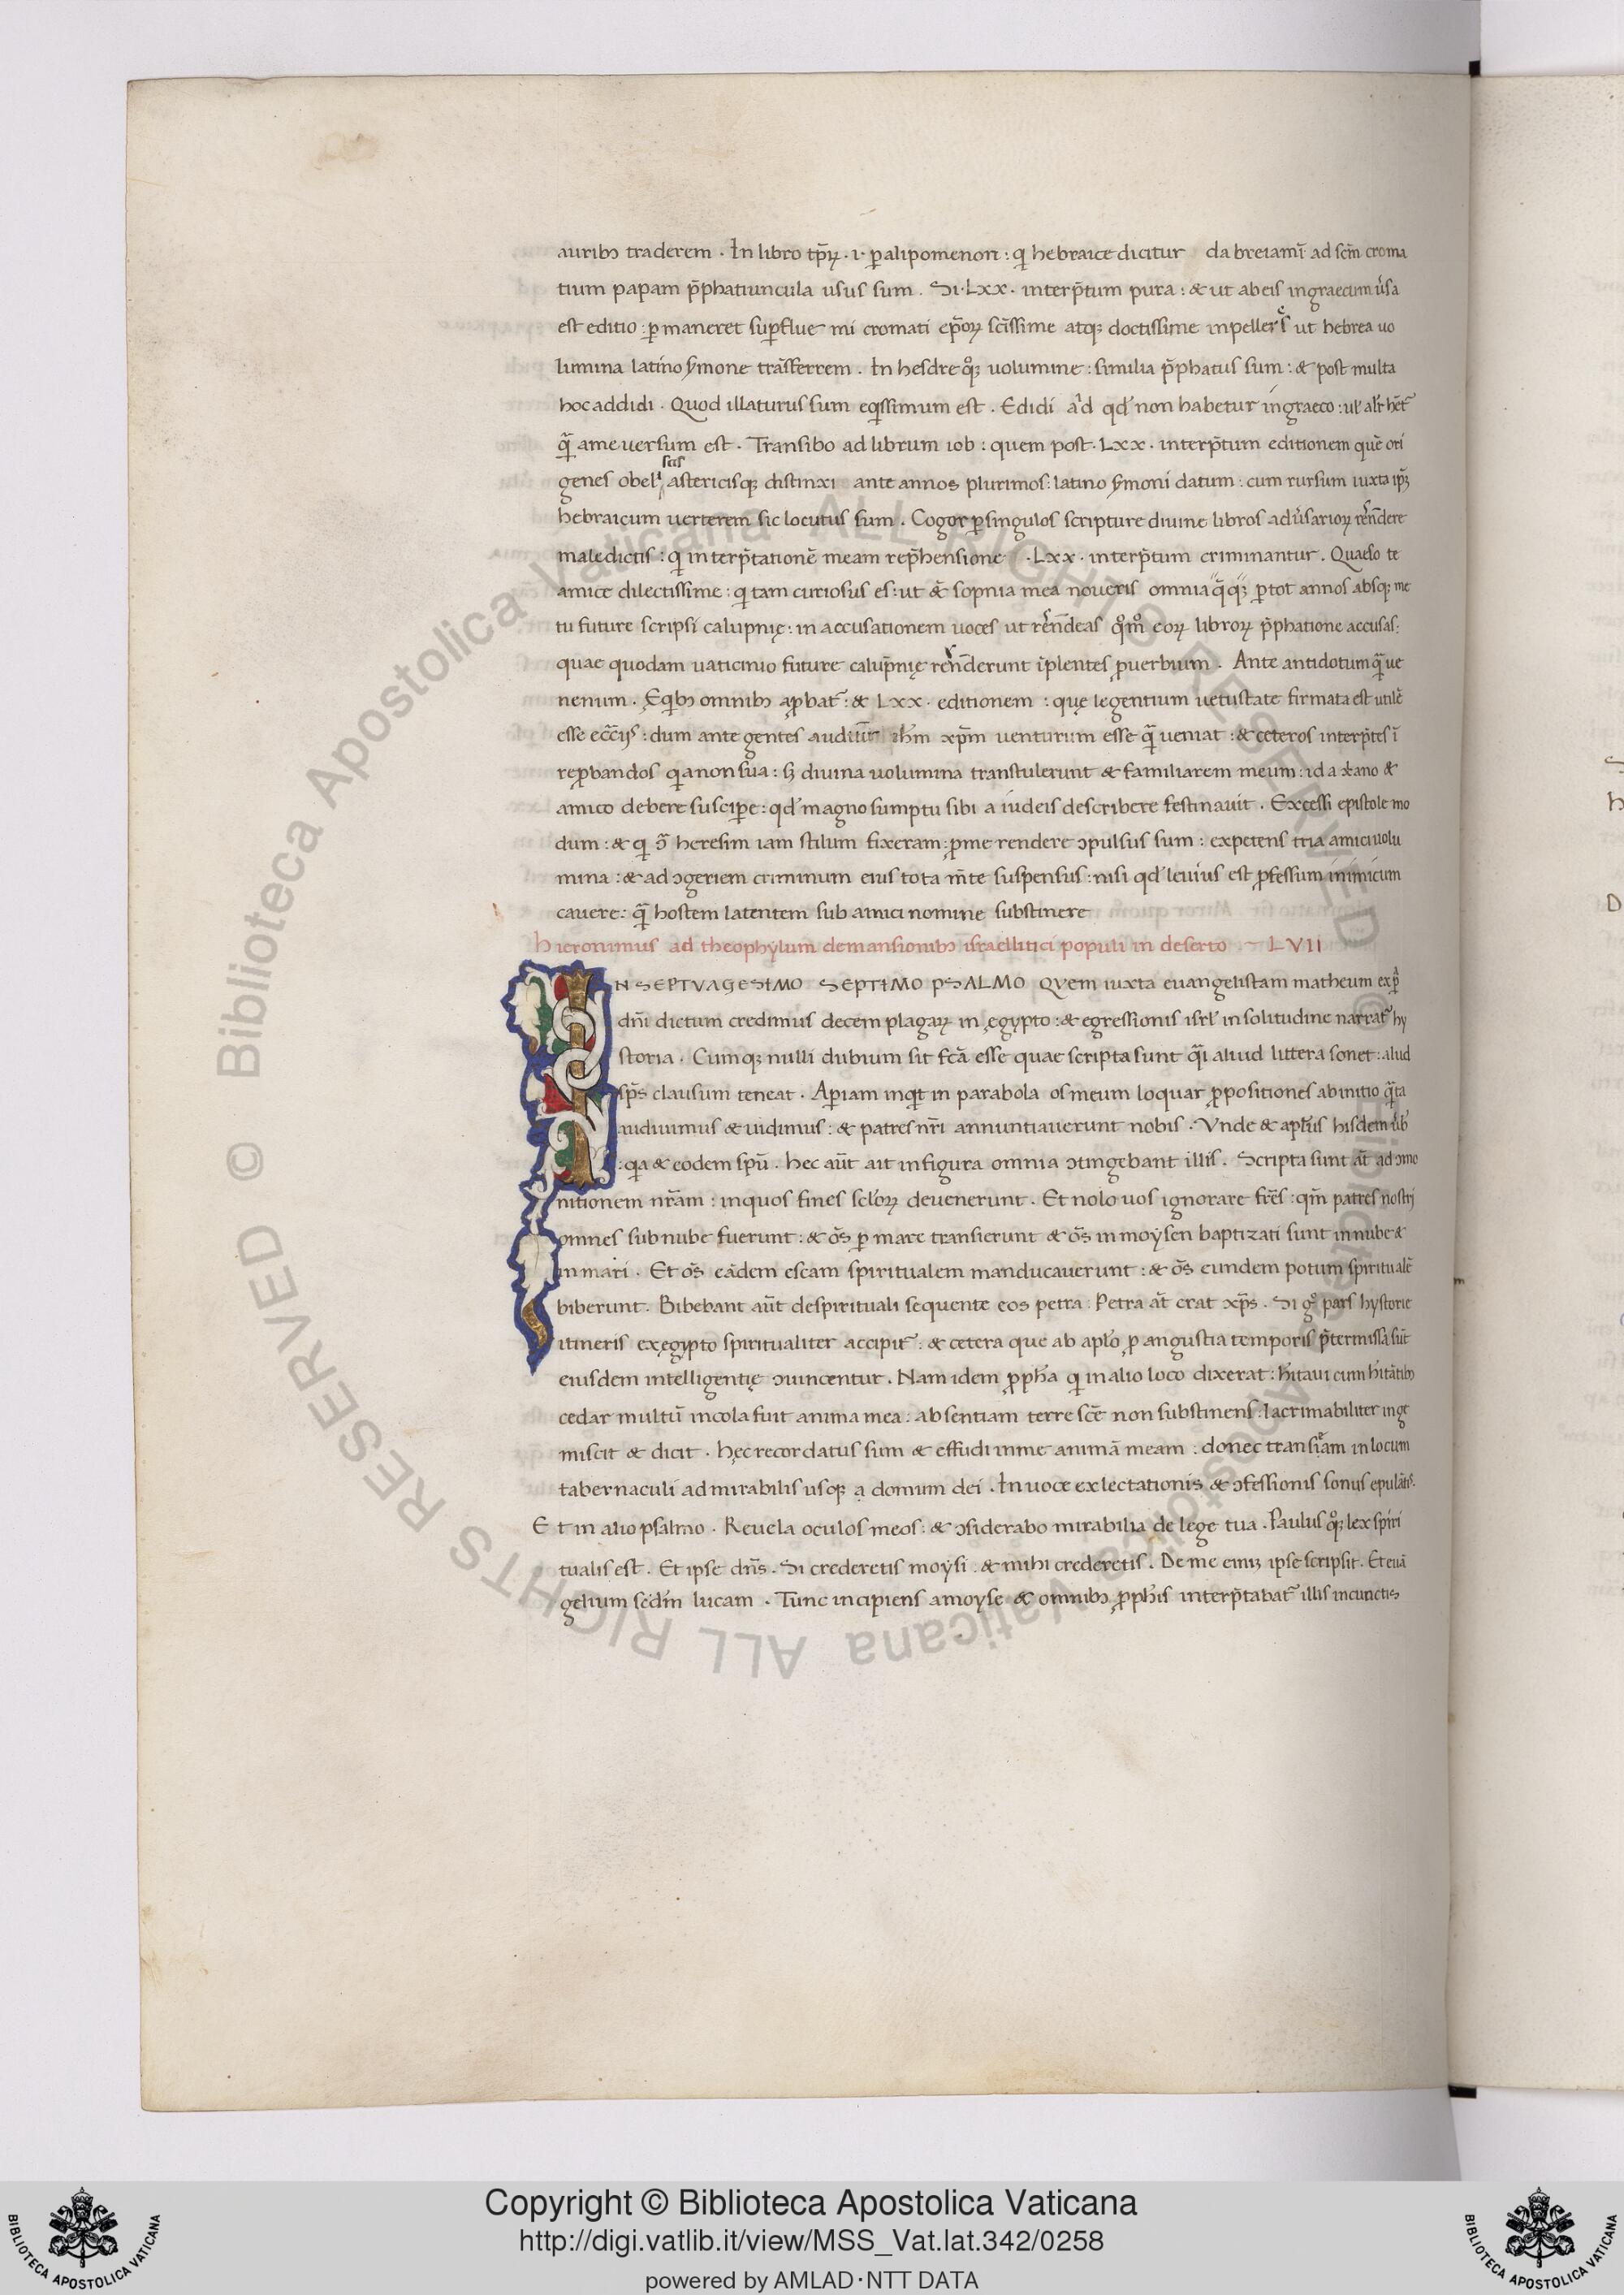 auribꝫ traderem · In libro tp̄rꝝ · i · ꝑalipomenon : qi hebraice dicitur da breiamī ad scm̄ croma
tium papam p̄phatiuncula usus sum . Si · Lxx · interp̄tum pura : & ut ab eis in graecum uersa
est editio : ꝑmaneret suꝑflue mi cromati ep̄orꝝ scīssime atqꝫ doctissime inpelleres ut hebrea uo
lumina latino ẜmone trāsferrem . In hesdre qoqꝫ uolumine : similia p̄phatus sum : & post multa
hoc addidi . Quod illaturus sum eqissimum est . Edidi aͥd qd' non habetur in graeco : ul' alr̄ het̄
qͣ̄ a me uersum est . Transibo ad librum iob : quem post · Lxx · interp̄tum editionem quē ori
genes obeliscis astericisqꝫ distinxi ante annos plurimos : latino ẜmoni datum : cum rursum iuxta ip̄ꝫ
hebraicum uerterem sic locutus sum . Cogor ꝑ singulos scripture diuine libros aduersariorꝝ rn̄dere
maledictis : qi interp̄tationē meam rep̄hensione · Lxx · interp̄tum criminantur . Quaeso te
amice dilectissime : qi tam curiosus es : ut & sopnia mea noueris omnia qͣ̄qꝫ ꝑ tot annos absqꝫ me
tu future scripsi calupnię : in accusationem uoces ut rn̄deas qomō eorꝝ librorꝝ p̄phatione accusas :
quae quodam uaticinio future calup̄nię rn̄derunt īplentes ꝓuerbium . Ante antidotum qͣ̄ ue
nenum . Ęqibꝫ omnibꝫ aꝓbat̄ : & Lxx · editionem : quę legentium uetustate firmata est utilē
esse ecc̄ijs : dum ante gentes audiūt ih̄m xp̄m uenturum esse qͣ̄ ueniat : & ceteros interp̄tes ī
reꝓbandos qia non sua : sꝫ diuina uolumina transtulerunt & familiarem meum : id a xr̄ano &
amico debere susciꝑe : qd' magno sumptu sibi a iudeis describere festinauit . Excessi epistole mo
dum : & qi ɔ̄ heresim iam stilum fixeram : ꝓ me rendere ɔpulsus sum : expetens tria amici uolu
mina : & ad ɔgeriem criminum eius tota m̄te suspensus : nisi qd' leuius est ꝓfessum inimicum
cauere : qͣ̄ hostem latentem sub amici nomine substinere
Hieronimus ad theophylum de mansionibꝫ israellitici populi in deserto ~ LVII
IN SEPTVAGESIMO SEPTIMO PSALMO QVem iuxta euangelistam matheum ex ꝑͣ
dn̄i dictum credimus decem plagarꝝ in ęgypto : & egressionis isrl' in solitudine narrat̄ hy
storia . Cumqꝫ nulli dubium sit fcā esse quae scripta sunt qͣ̄i aliud littera sonet : aliud
sp̄s clausum teneat . Aꝑiam inqit in parabola os meum loquar ꝓpositiones ab initio qͣ̄ta
audiuimus & uidimus : & patres nr̄i annuntiauerunt nobis . Vnde & apl'us hisdem uerb'
: qia & eodem spū . hec aūt ait in figura omnia ɔtingebant illis . Scripta sunt at̄ ad ɔmo
nitionem nr̄am : in quos fines scl'orꝝ deuenerunt . Et nolo uos ignorare fr̄es : qm̄ patres nostri
omnes sub nube fuerunt : & oe̅s ꝑ mare transierunt & oe̅s in moysen baptizati sunt in nube &
in mari . Et oe̅s eādem escam spiritualem manducauerunt : & oe̅s eundem potum spiritualē
biberunt . Bibebant aūt de spirituali sequente eos petra : Petra at̄ erat xp̄s . Si go pars hystorie
itineris ex ęgypto spiritualiter accipit̄ : & cetera que ab apl'o ꝓ angustia temporis p̄termissa sūt
eiusdem intelligentię ɔuincentur . Nam idem ꝓph'a qi in alio loco dixerat : h'itaui cum h'itātibꝫ
cedar multū incola fuit anima mea : absentiam terre scē non substinens : lacrimabiliter inge
miscit & dicit . hęc recordatus sum & effudi in me animā meam : donec transieam in locum
tabernaculi admirabilis usqꝫ a domum dei . In uoce exlectationis & ɔfessionis sonus epulātis .
Et in alio psalmo . Reuela oculos meos : & ɔsiderabo mirabilia de lege tua . Paulus qoqꝫ lex spiri
tualis est . Et ipse dn̄s . Si crederetis moysi : & mihi crederetis . De me enim ipse scripsit . Et euā
gelium scd'm lucam . Tunc incipiens a moyse & omnibꝫ ꝓph'is interp̄tabat̄ illis in cunctis
Copyright © Biblioteca Apostolica Vaticana
http://digi.vatlib.it/view/MSS_Vat.lat.342/0258
powered by AMLAD·NTT DATA
BIBLIOTECA APOSTOLICA VATICANA
BIBLIOTECA APOSTOLICA VATICANA
© Biblioteca Apostolica Vaticana ALL RIGHTS RESERVED
© Biblioteca Apostolica Vaticana ALL RIGHTS RESERVED